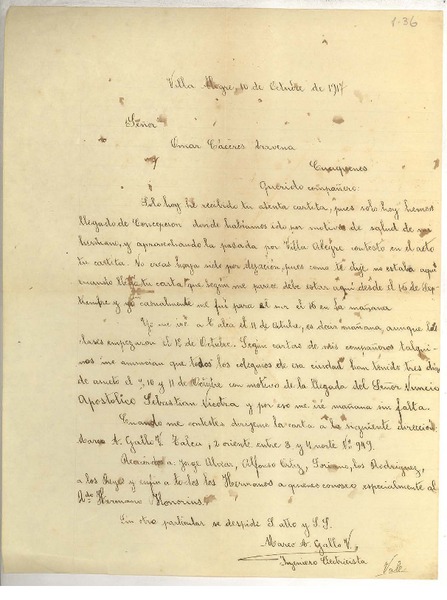 1.36
Villa Alegre, 10 de Octubre de 1917
Señor
Omar Cáceres Aravena
Cauquenes
Querido compañero:
Solo hoy he recibido tu atenta cartita, pues solo hoy hemos
llegado de Concepcion donde habiamos ido por motivos de salud de mi
hermano, y aprovechando la pasada por Villa Alegre contesto en el acto
tu cartita. No creas haya sido por dejacion, pues como te dije no estaba aquí
cuando llegó tu carta que segun me parece debe estar aquí desde el 16 de Sep-
tiembre y yo casualmente me fuí para el sur el 16 en la mañana.
Yo me iré a Talca el 11 de Octubre, es decir mañana, aunque las
clases empezaron el 1º de Octubre. Segun cartas de mis compañeros talqui-
nos me anuncian que todos los colegios de esa ciudad han tenido tres dias
de asueto el 9, 10 y 11 de Octubre con motivo de la llegada del Señor Nuncio
Apostólico Sebastian Nicotra y por eso me iré mañana sin falta.
Cuando me contestes dirijeme la carta a la siguiente direccion:
Marco A. Gallo V. Talca, 2 oriente entre 3 y 4 norte Nº 949.
Recuerdos a Jorge Alvear, Alfonso Ortiz, los Rodriguez,
a los Reyes y en fin a todos los Hermanos a quienes conozco especialmente al
Hermano Honorius.
Sin otro particular se despide S. atto y S.S.
Marco A. Gallo V.
Ingeniero Electricista
Vale